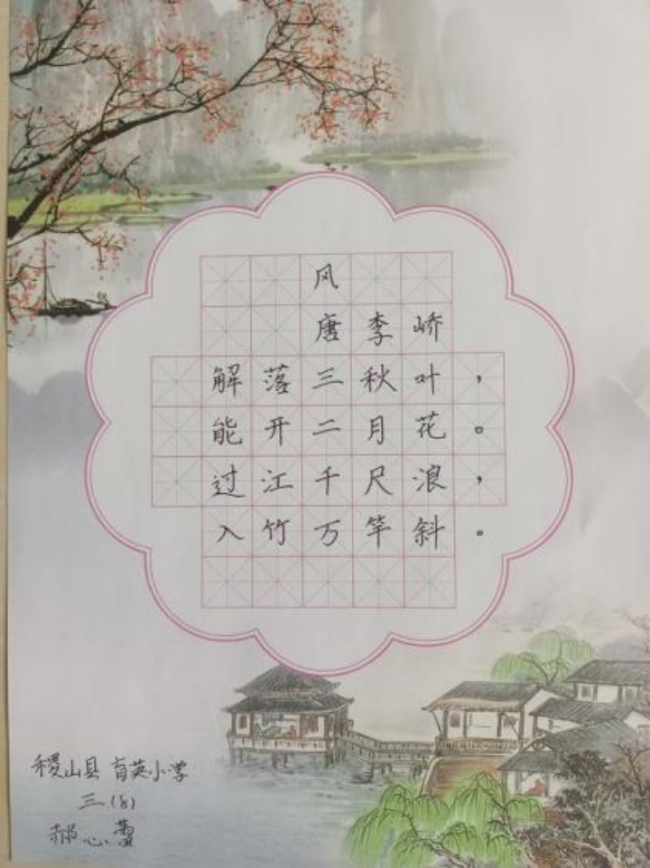 风
唐 李 峤
解落三秋叶，
能开二月花。
过江千尺浪，
入竹万竿斜。
稷山县 育英小学
三（8）
郝心